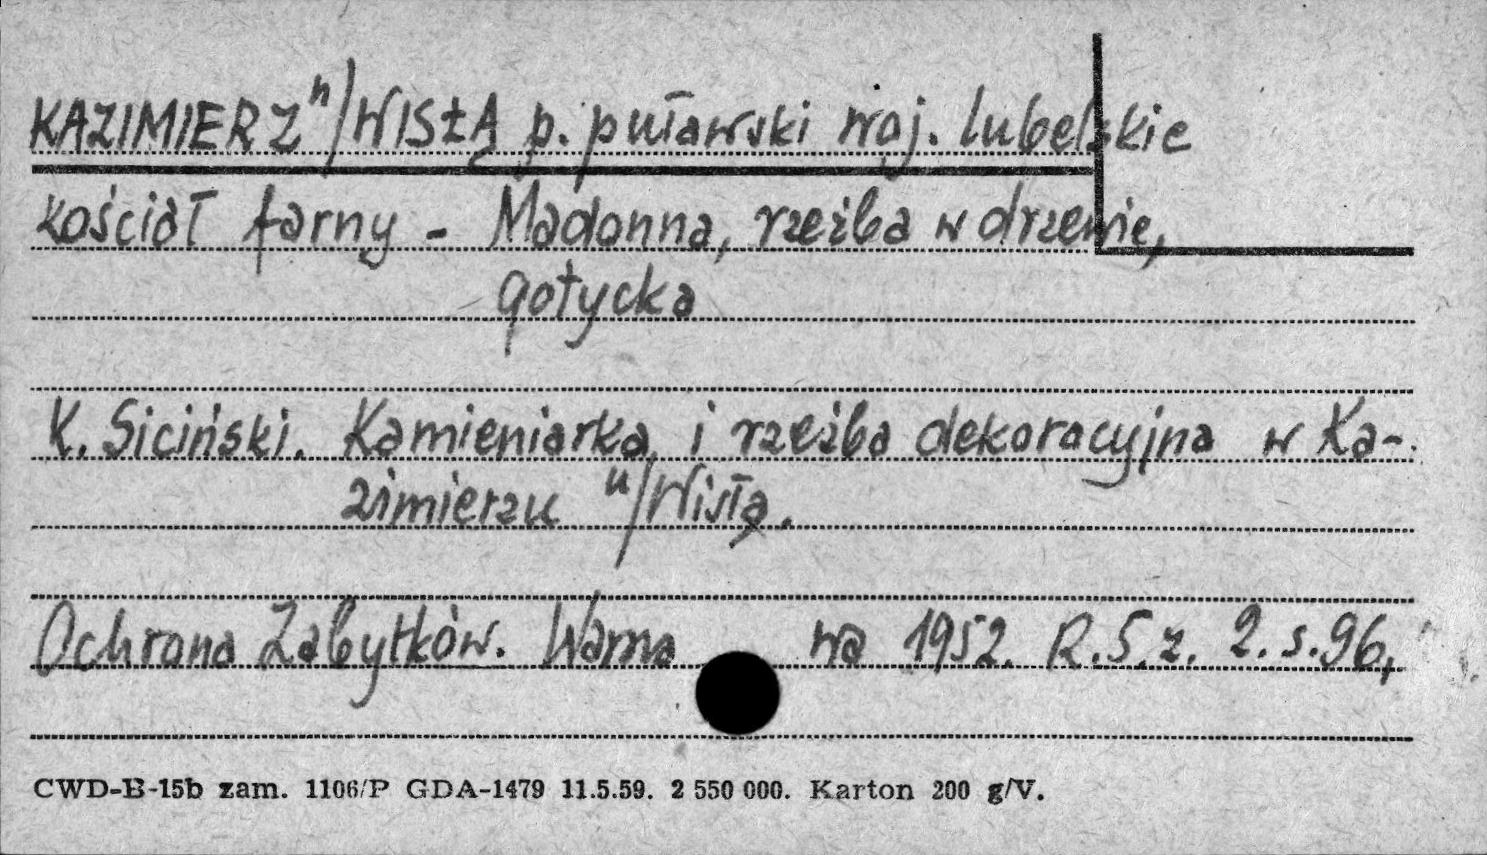 KAZIMIERZ n/WISŁĄ p. puławski woj. lubelskie
kościół farny - Madonna, rzeźba w drzewie,
gotycka
K. Siciński. Kamieniarka i rzeźba dekoracyjna w Ka-
zimierzu n/Wisłą.
Ochrona Zabytków. Warszawa 1952. R.5.z. 2. s.96,
CWD-B-15b zam. 1106/P GDA-1479 11.5.59. 2 550 000. Karton 200 g/V.